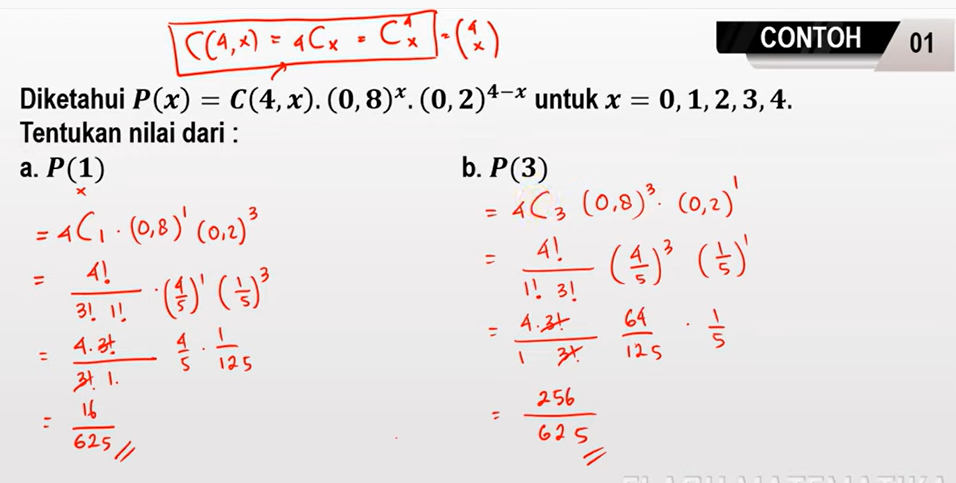 C(4,x) = 4Cx = C⁴ₓ = (4 x)
CONTOH 01
Diketahui P(x) = C(4, x). (0, 8)ˣ. (0, 2)⁴⁻ˣ untuk x = 0, 1, 2, 3, 4.
Tentukan nilai dari :
a. P(1)
x
= 4C1 · (0,8)¹ (0,2)³
= 4!/(3! 1!) · (4/5)¹ (1/5)³
= (4.3!)/(3! 1.) 4/5 · 1/125
= 16/625 //
b. P(3)
= 4C3 (0,8)³ · (0,2)¹
= 4!/(1! 3!) (4/5)³ (1/5)¹
= (4.3!)/(1 3!) 64/125 · 1/5
= 256/625 //